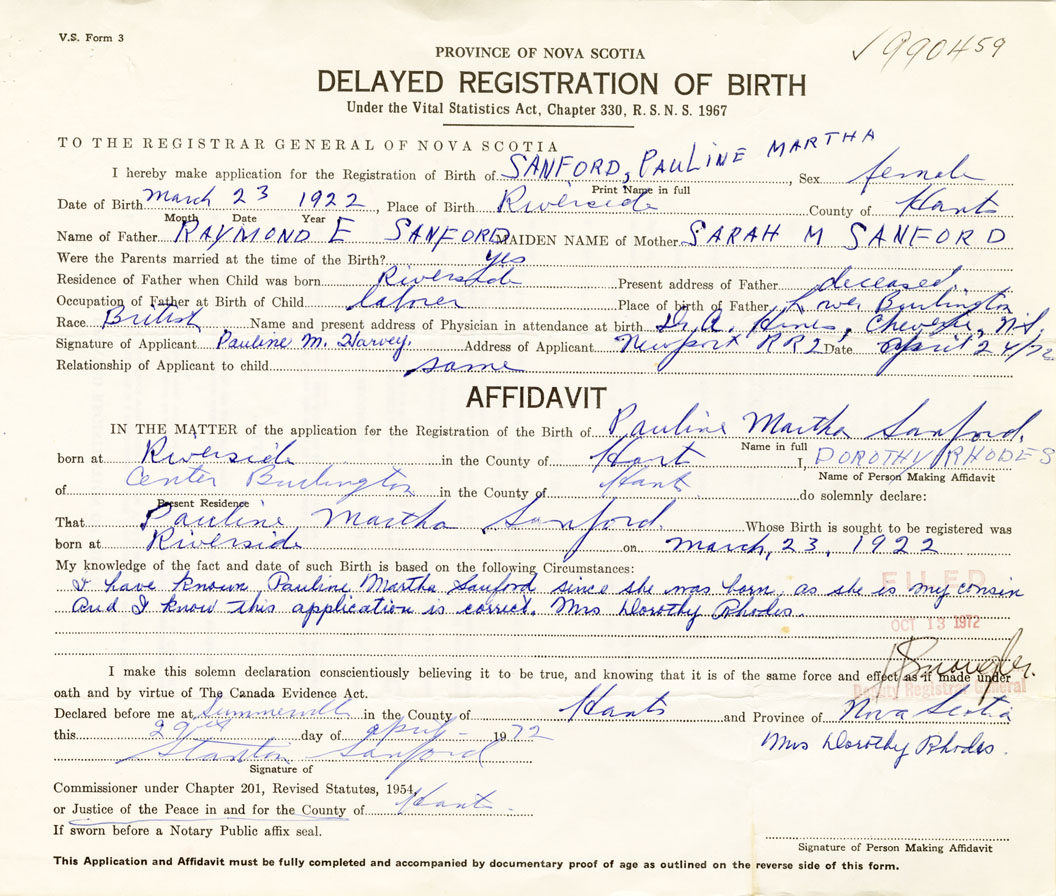 V.S. Form 3
PROVINCE OF NOVA SCOTIA
990459
DELAYED REGISTRATION OF BIRTH
Under the Vital Statistics Act, Chapter 330, R. S. N. S. 1967
TO THE REGISTRAR GENERAL OF NOVA SCOTIA
I hereby make application for the Registration of Birth of SANFORD, PAULINE MARTHA, Sex female
Print Name in full
Date of Birth March 23 1922, Place of Birth Riverside County of Hants
Month Date Year
Name of Father RAYMOND E SANFORD MAIDEN NAME of Mother SARAH M SANFORD
Were the Parents married at the time of the Birth? yes
Residence of Father when Child was born Riverside Present address of Father deceased
Occupation of Father at Birth of Child laborer Place of birth of Father Lower Burlington
Race British Name and present address of Physician in attendance at birth Dr. A. N.S.
Signature of Applicant Pauline M. Harvey. Address of Applicant Newport RR2 Date April 24/72
Relationship of Applicant to child same
AFFIDAVIT
IN THE MATTER of the application for the Registration of the Birth of Pauline Martha Sanford.
Name in full
born at Riverside in the County of Hant I, DOROTHY RHODES
Name of Person Making Affidavit
of Center Burlington in the County of Hants do solemnly declare:
Present Residence
That Pauline Martha Sanford Whose Birth is sought to be registered was
born at Riverside on March, 23, 1922
My knowledge of the fact and date of such Birth is based on the following Circumstances:
I have known Pauline Martha Sanford since she was born, as she is my cousin
And I know this application is correct. Mrs Dorothy Rhodes.
FILED
OCT 13 1972
I make this solemn declaration conscientiously believing it to be true, and knowing that it is of the same force and effect as if made under
oath and by virtue of The Canada Evidence Act.
Deputy Registrar General
Declared before me at Summerville in the County of Hants and Province of Nova Scotia
this day of April 1972
Mrs Dorothy Rhodes.
Stanton Sanford
Signature of
Commissioner under Chapter 201, Revised Statutes, 1954,
or Justice of the Peace in and for the County of Hants.
If sworn before a Notary Public affix seal.
Signature of Person Making Affidavit
This Application and Affidavit must be fully completed and accompanied by documentary proof of age as outlined on the reverse side of this form.